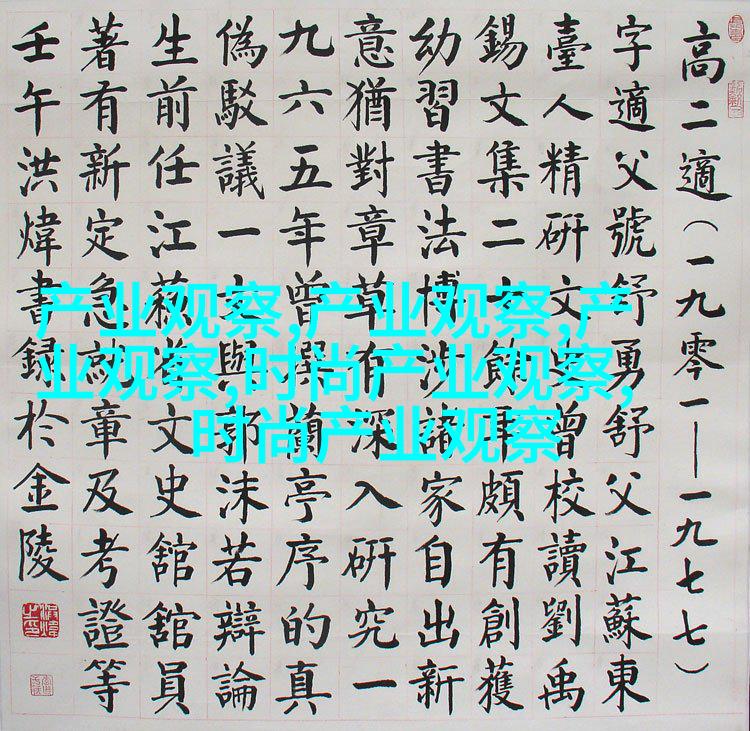 高二適(一九零一—一九七七)
字適父號舒勇舒父江蘇東
臺人精研文史曾校讀劉禹
錫文集二十餘年頗有創獲
幼習書法博涉諸家自出新
意猶對章草有深入研究一
九六五年曾撰蘭亭序的真
偽駁議一文與郭沫若辯論
生前任江蘇省文史舘舘員
著有新定急就章及考證等
壬午洪煒書録於金陵
产业观察,产业观察,产
业观察,时尚产业观察,
时尚产业观察